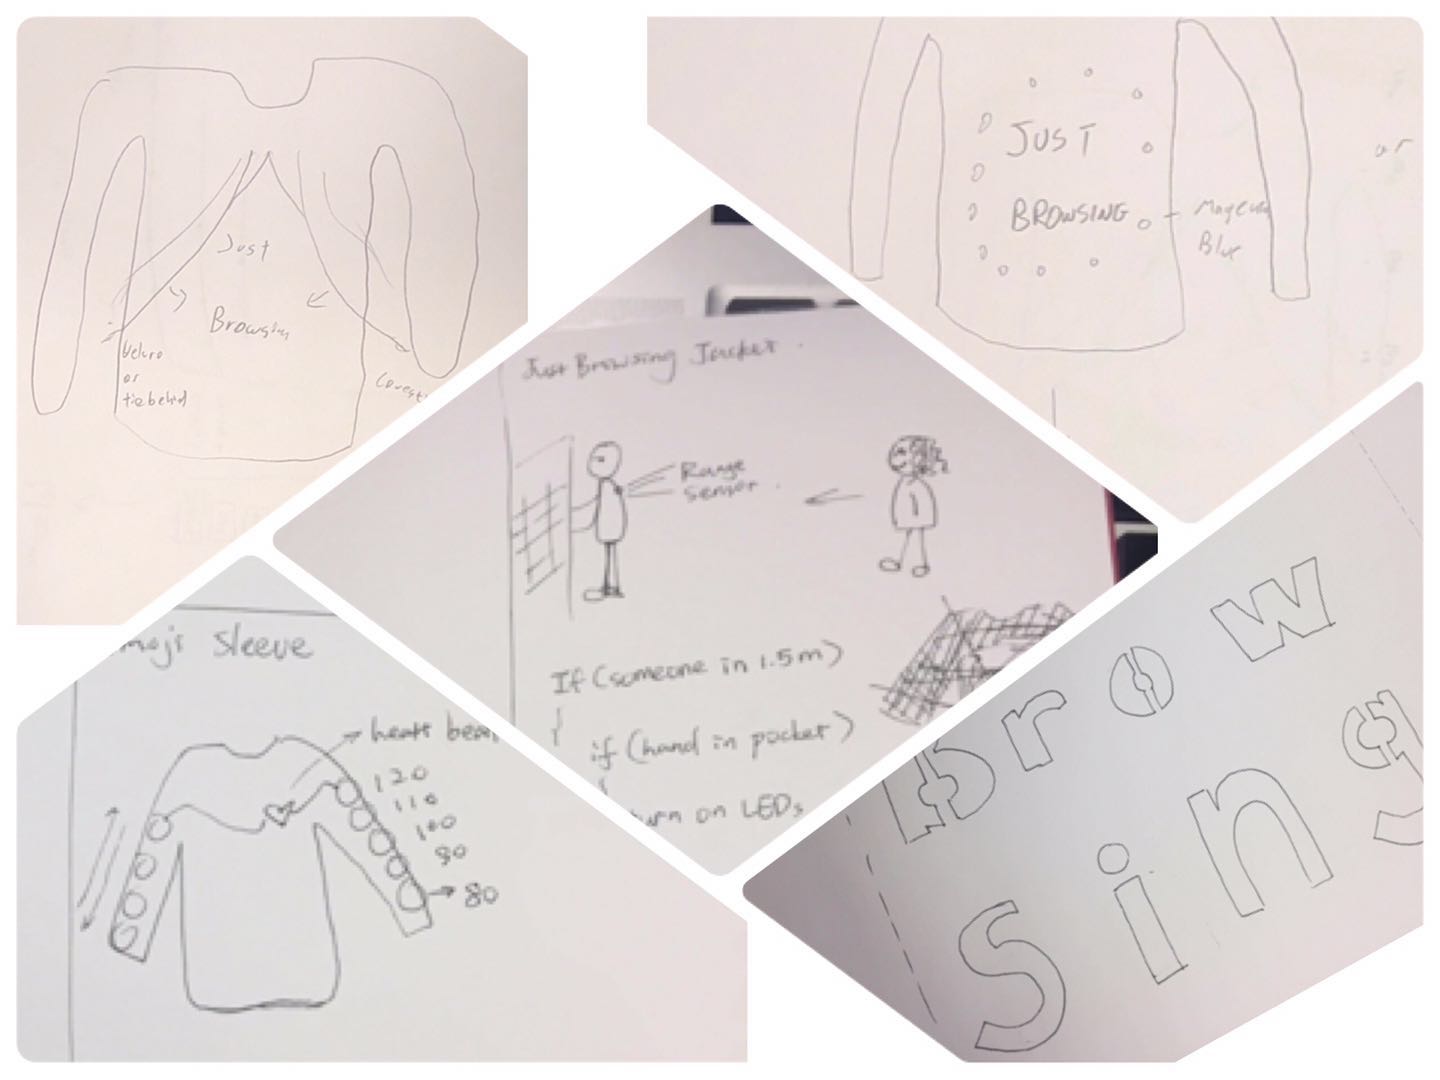 Just
Browsin
Velcro
or
tie behind
JUST
BROWSING
Blue
or
Just Browsing Jacket.
Range
sensor.
If (someone in 1.5m)
{
if (hand in pocket)
{
urn on LEDs
moji Sleeve
heart bea
120
110
100
90
80
Brow
Sing